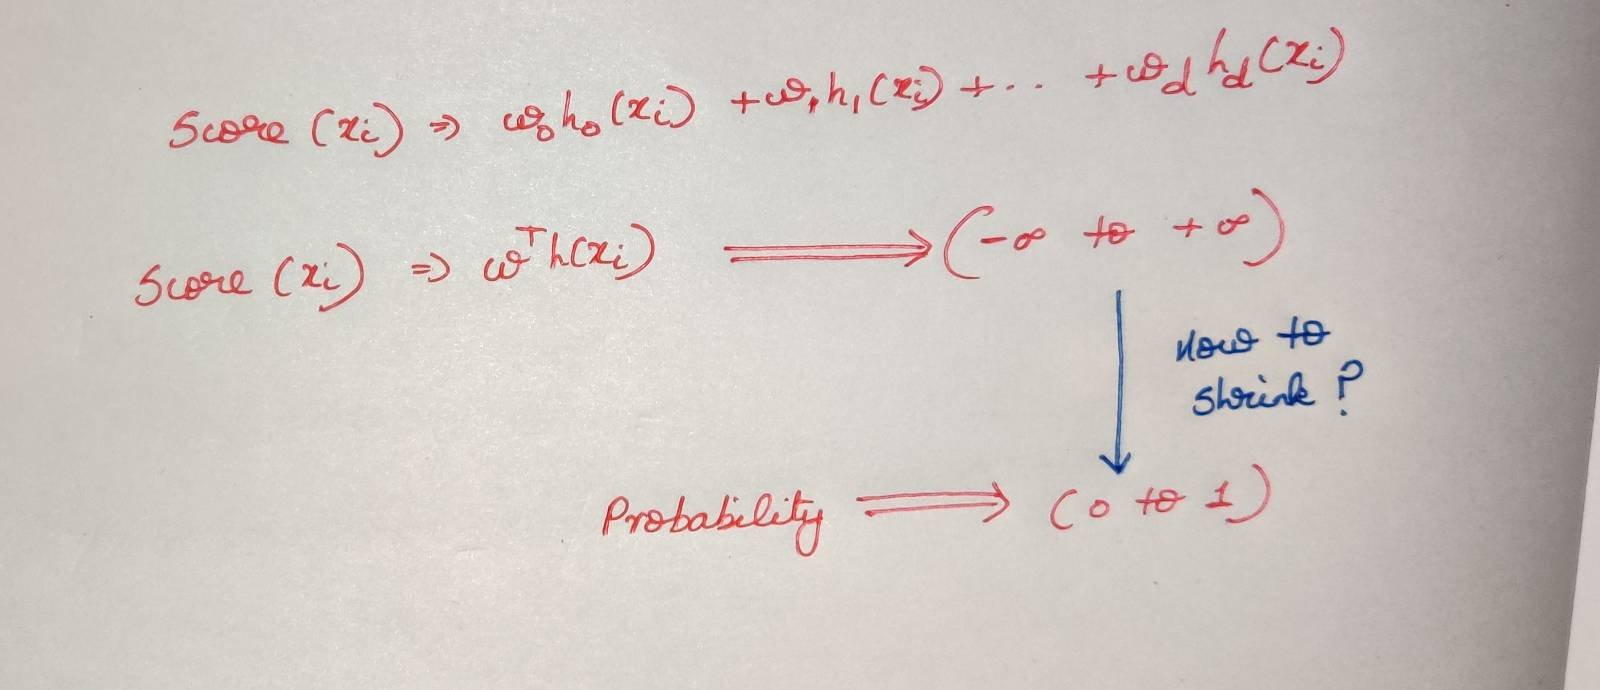 Score (xi) ⇒ w0h0(xi) + w1h1(xi) + ... + wdhd(xi)
Score (xi) ⇒ wᵀh(xi) ⟹ (-∞ to +∞)
How to
shrink?
Probability ⟹ (0 to 1)